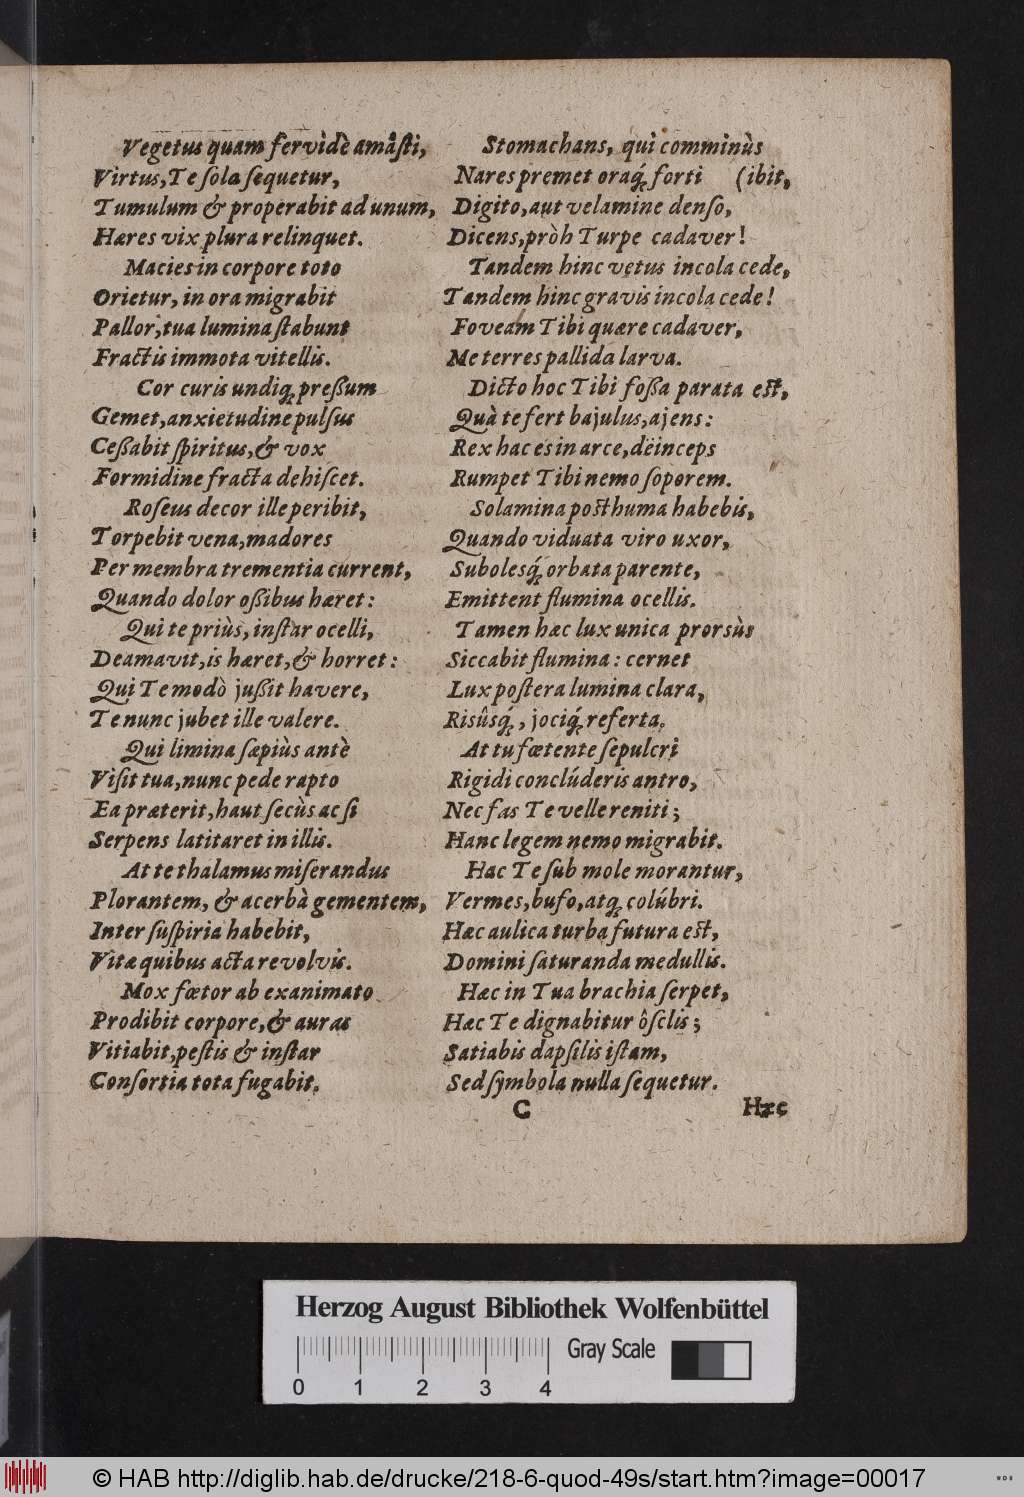 Vegetus quam fervidè amâsti,
Virtus, Te sola sequetur,
Tumulum & properabit ad unum,
Hæres vix plura relinquet.
Macies in corpore toto
Orietur, in ora migrabit
Pallor, tua lumina stabunt
Fractis immota vitellis.
Cor curis undiq; preßum
Gemet, anxietudine pulsus
Ceßabit spiritus, & vox
Formidine fracta dehiscet.
Roseus decor ille peribit,
Torpebit vena, madores
Per membra trementia current,
Quando dolor oßibus hæret:
Qui te priùs, instar ocelli,
Deamavit, is hæret, & horret:
Qui Te modò jußit havere,
Te nunc jubet ille valere.
Qui limina sæpiùs antè
Visit tua, nunc pede rapto
Ea præterit, haut secùs ac si
Serpens latitaret in illis.
At te thalamus miserandus
Plorantem, & acerbà gementem,
Inter suspiria habebit,
Vitæ quibus acta revolvis.
Mox fœtor ab exanimato
Prodibit corpore, & auras
Vitiabit, pestis & instar
Consortia tota fugabit.
Stomachans, qui comminùs
Nares premet oraq́; forti (ibit,
Digito, aut velamine denso,
Dicens, pròh Turpe cadaver!
Tandem hinc vetus incola cede,
Tandem hinc gravis incola cede!
Foveam Tibi quære cadaver,
Me terres pallida larva.
Dicto hoc Tibi foßa parata est,
Quà te fert bajulus, ajens:
Rex hac es in arce, dëinceps
Rumpet Tibi nemo soporem.
Solamina posthuma habebis,
Quando viduata viro uxor,
Subolesq́; orbata parente,
Emittent flumina ocellis.
Tamen hæc lux unica prorsùs
Siccabit flumina: cernet
Lux postera lumina clara,
Risûsq́;, jociq́; referta.
At tu fœtente sepulcri
Rigidi conclúderis antro,
Nec fas Te velle reniti;
Hanc legem nemo migrabit.
Hac Te sub mole morantur,
Vermes, bufo, atq; colúbri.
Hæc aulica turba futura est,
Domini saturanda medullis.
Hæc in Tua brachia serpet,
Hæc Te dignabitur ôsclis;
Satiabis dapsilis istam,
Sed symbola nulla sequetur.
C Hæc
Herzog August Bibliothek Wolfenbüttel
Gray Scale
0 1 2 3 4
© HAB http://diglib.hab.de/drucke/218-6-quod-49s/start.htm?image=00017